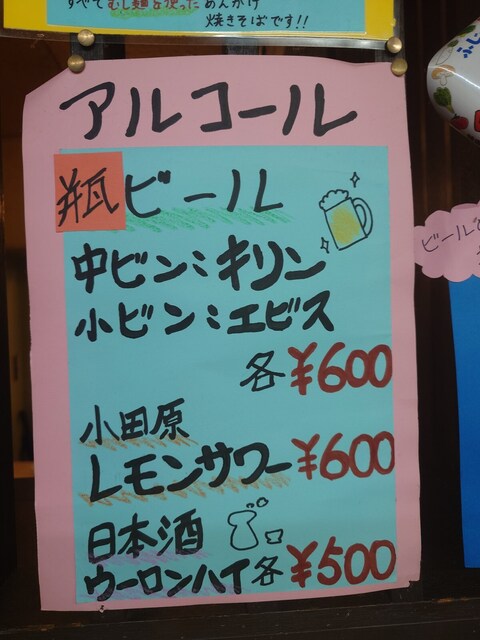 すべてむし麺を使ったあんかけ
焼きそばです!!
アルコール
瓶ビール
中ビン:キリン
小ビン:エビス
各¥600
小田原
レモンサワー¥600
日本酒
ウーロンハイ各¥500
ビール